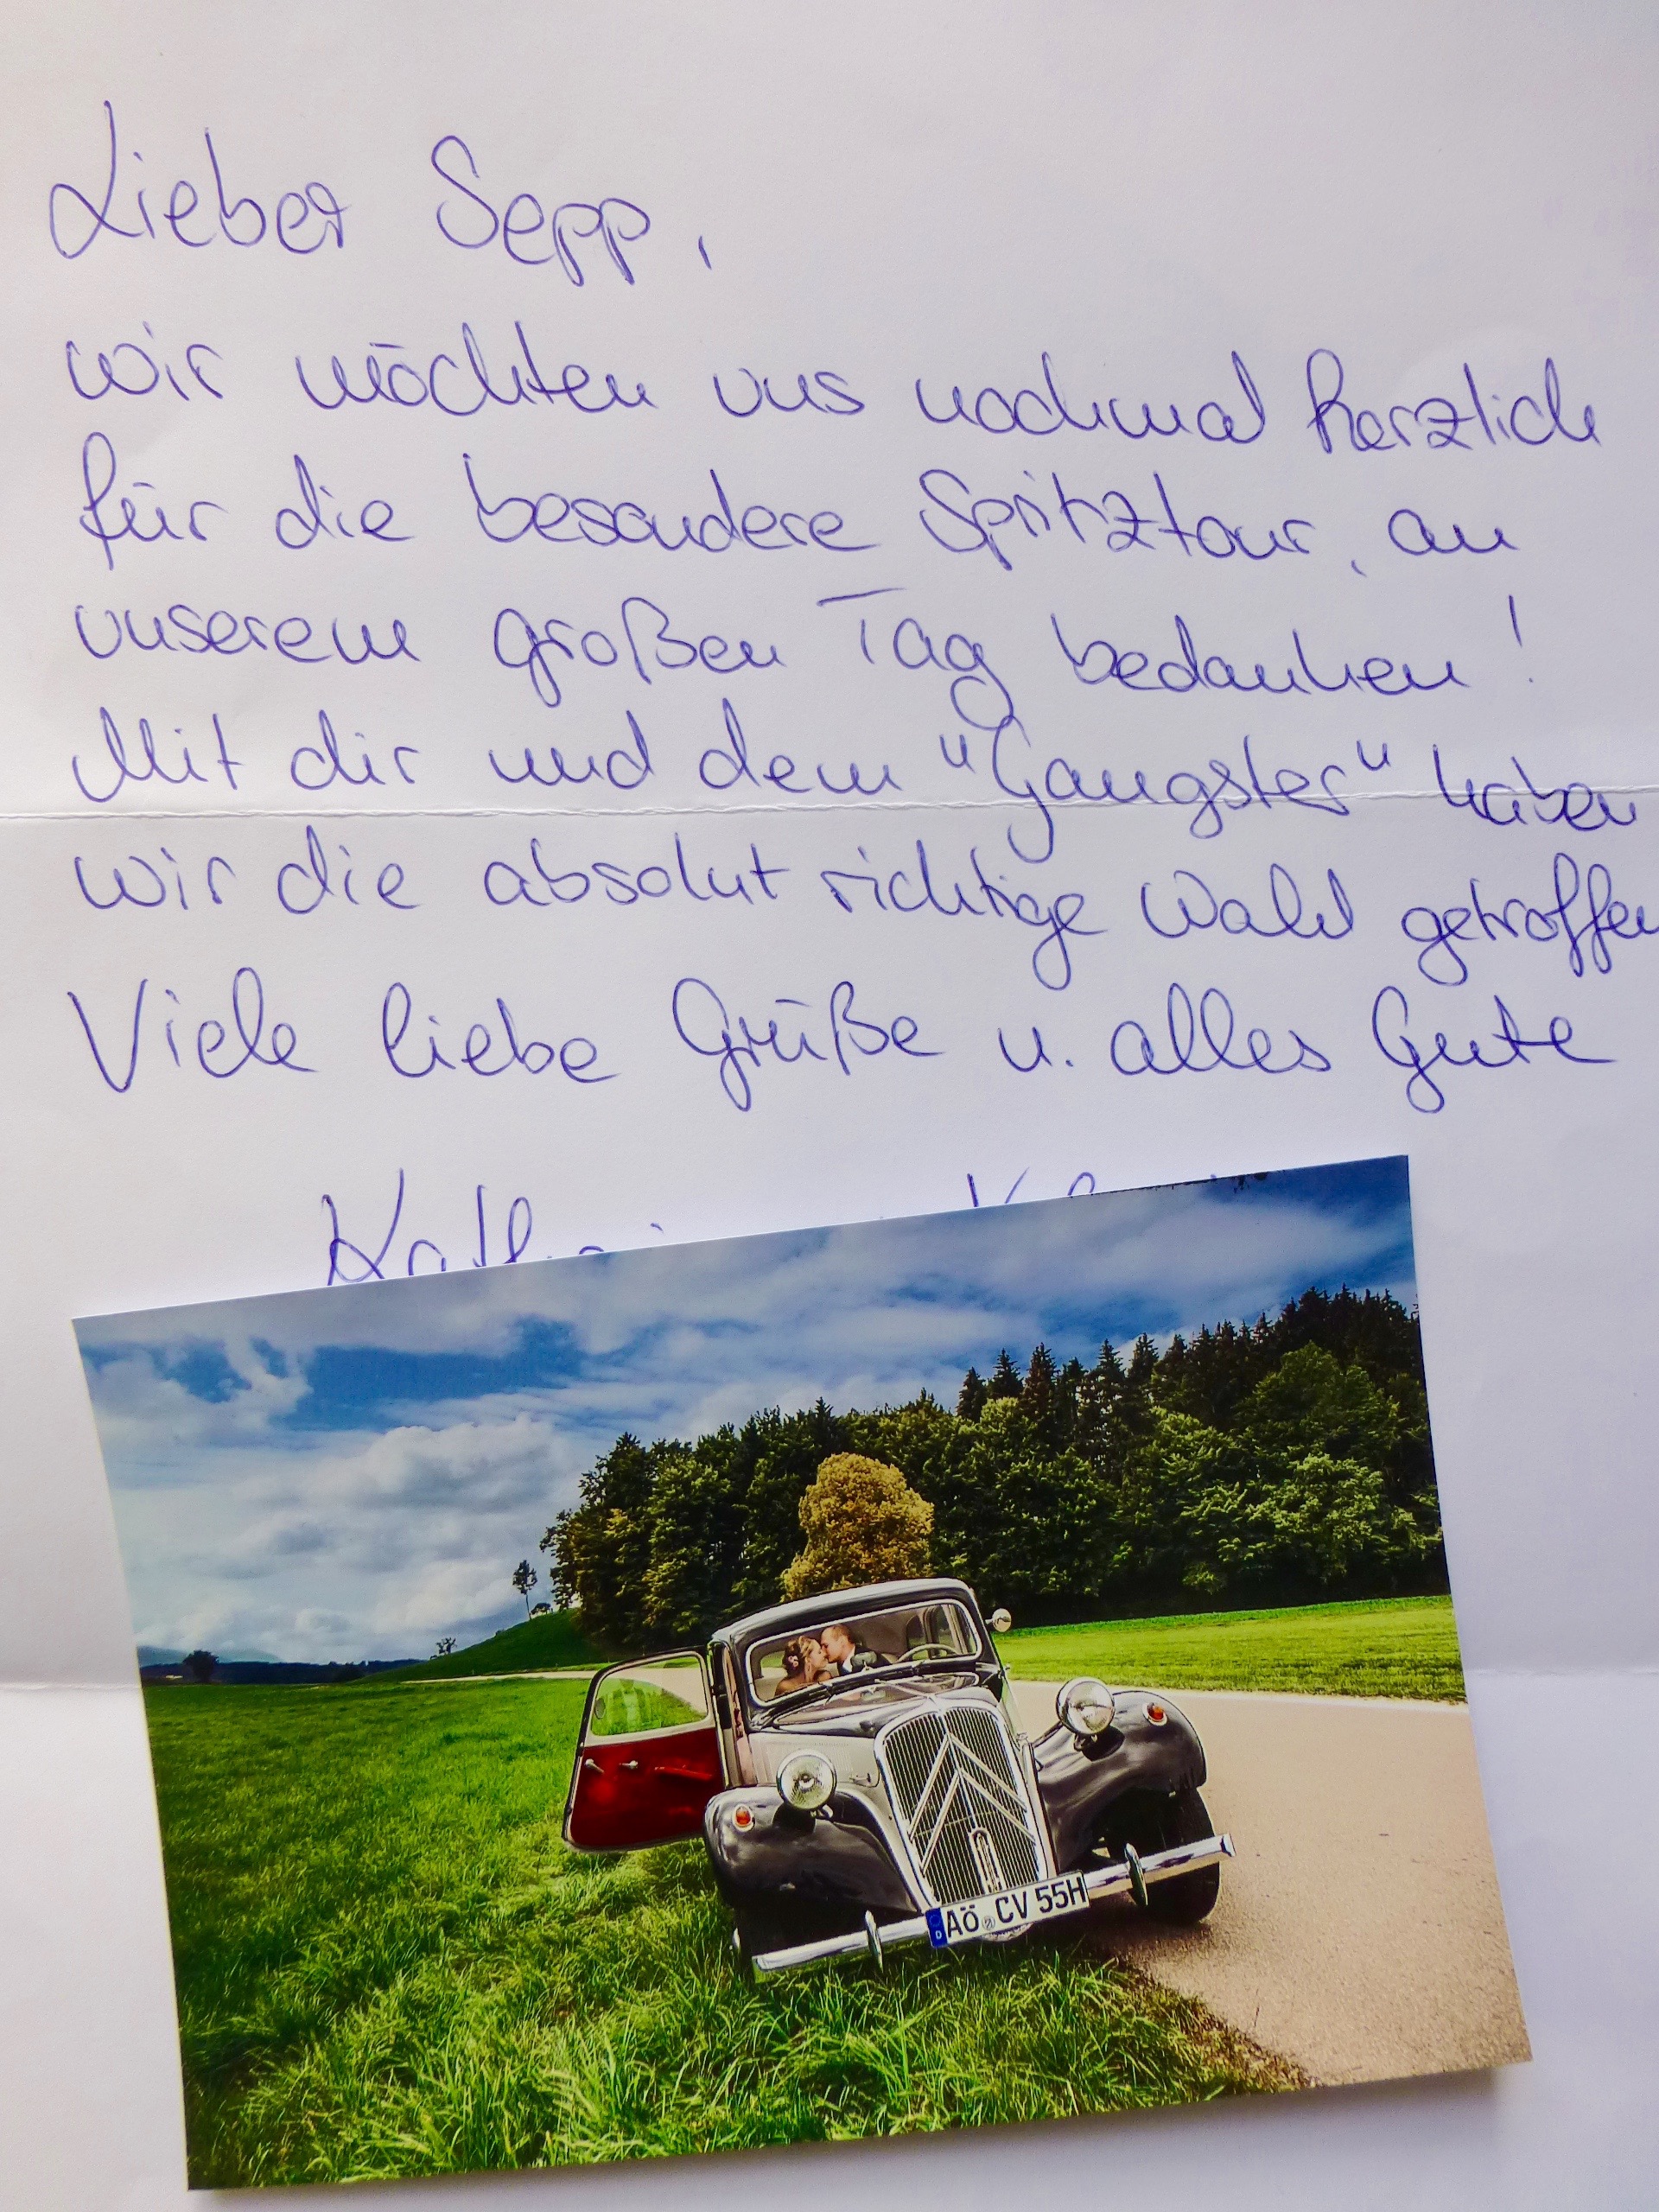 Lieber Sepp,
wir möchten uns nochmal herzlich
für die besondere Spritztour, an
unserem großen Tag bedanken!
Mit dir und dem "Gangster" haben
wir die absolut richtige Wahl getroffen
Viele liebe Grüße u. alles Gute
AÖ CV 55H